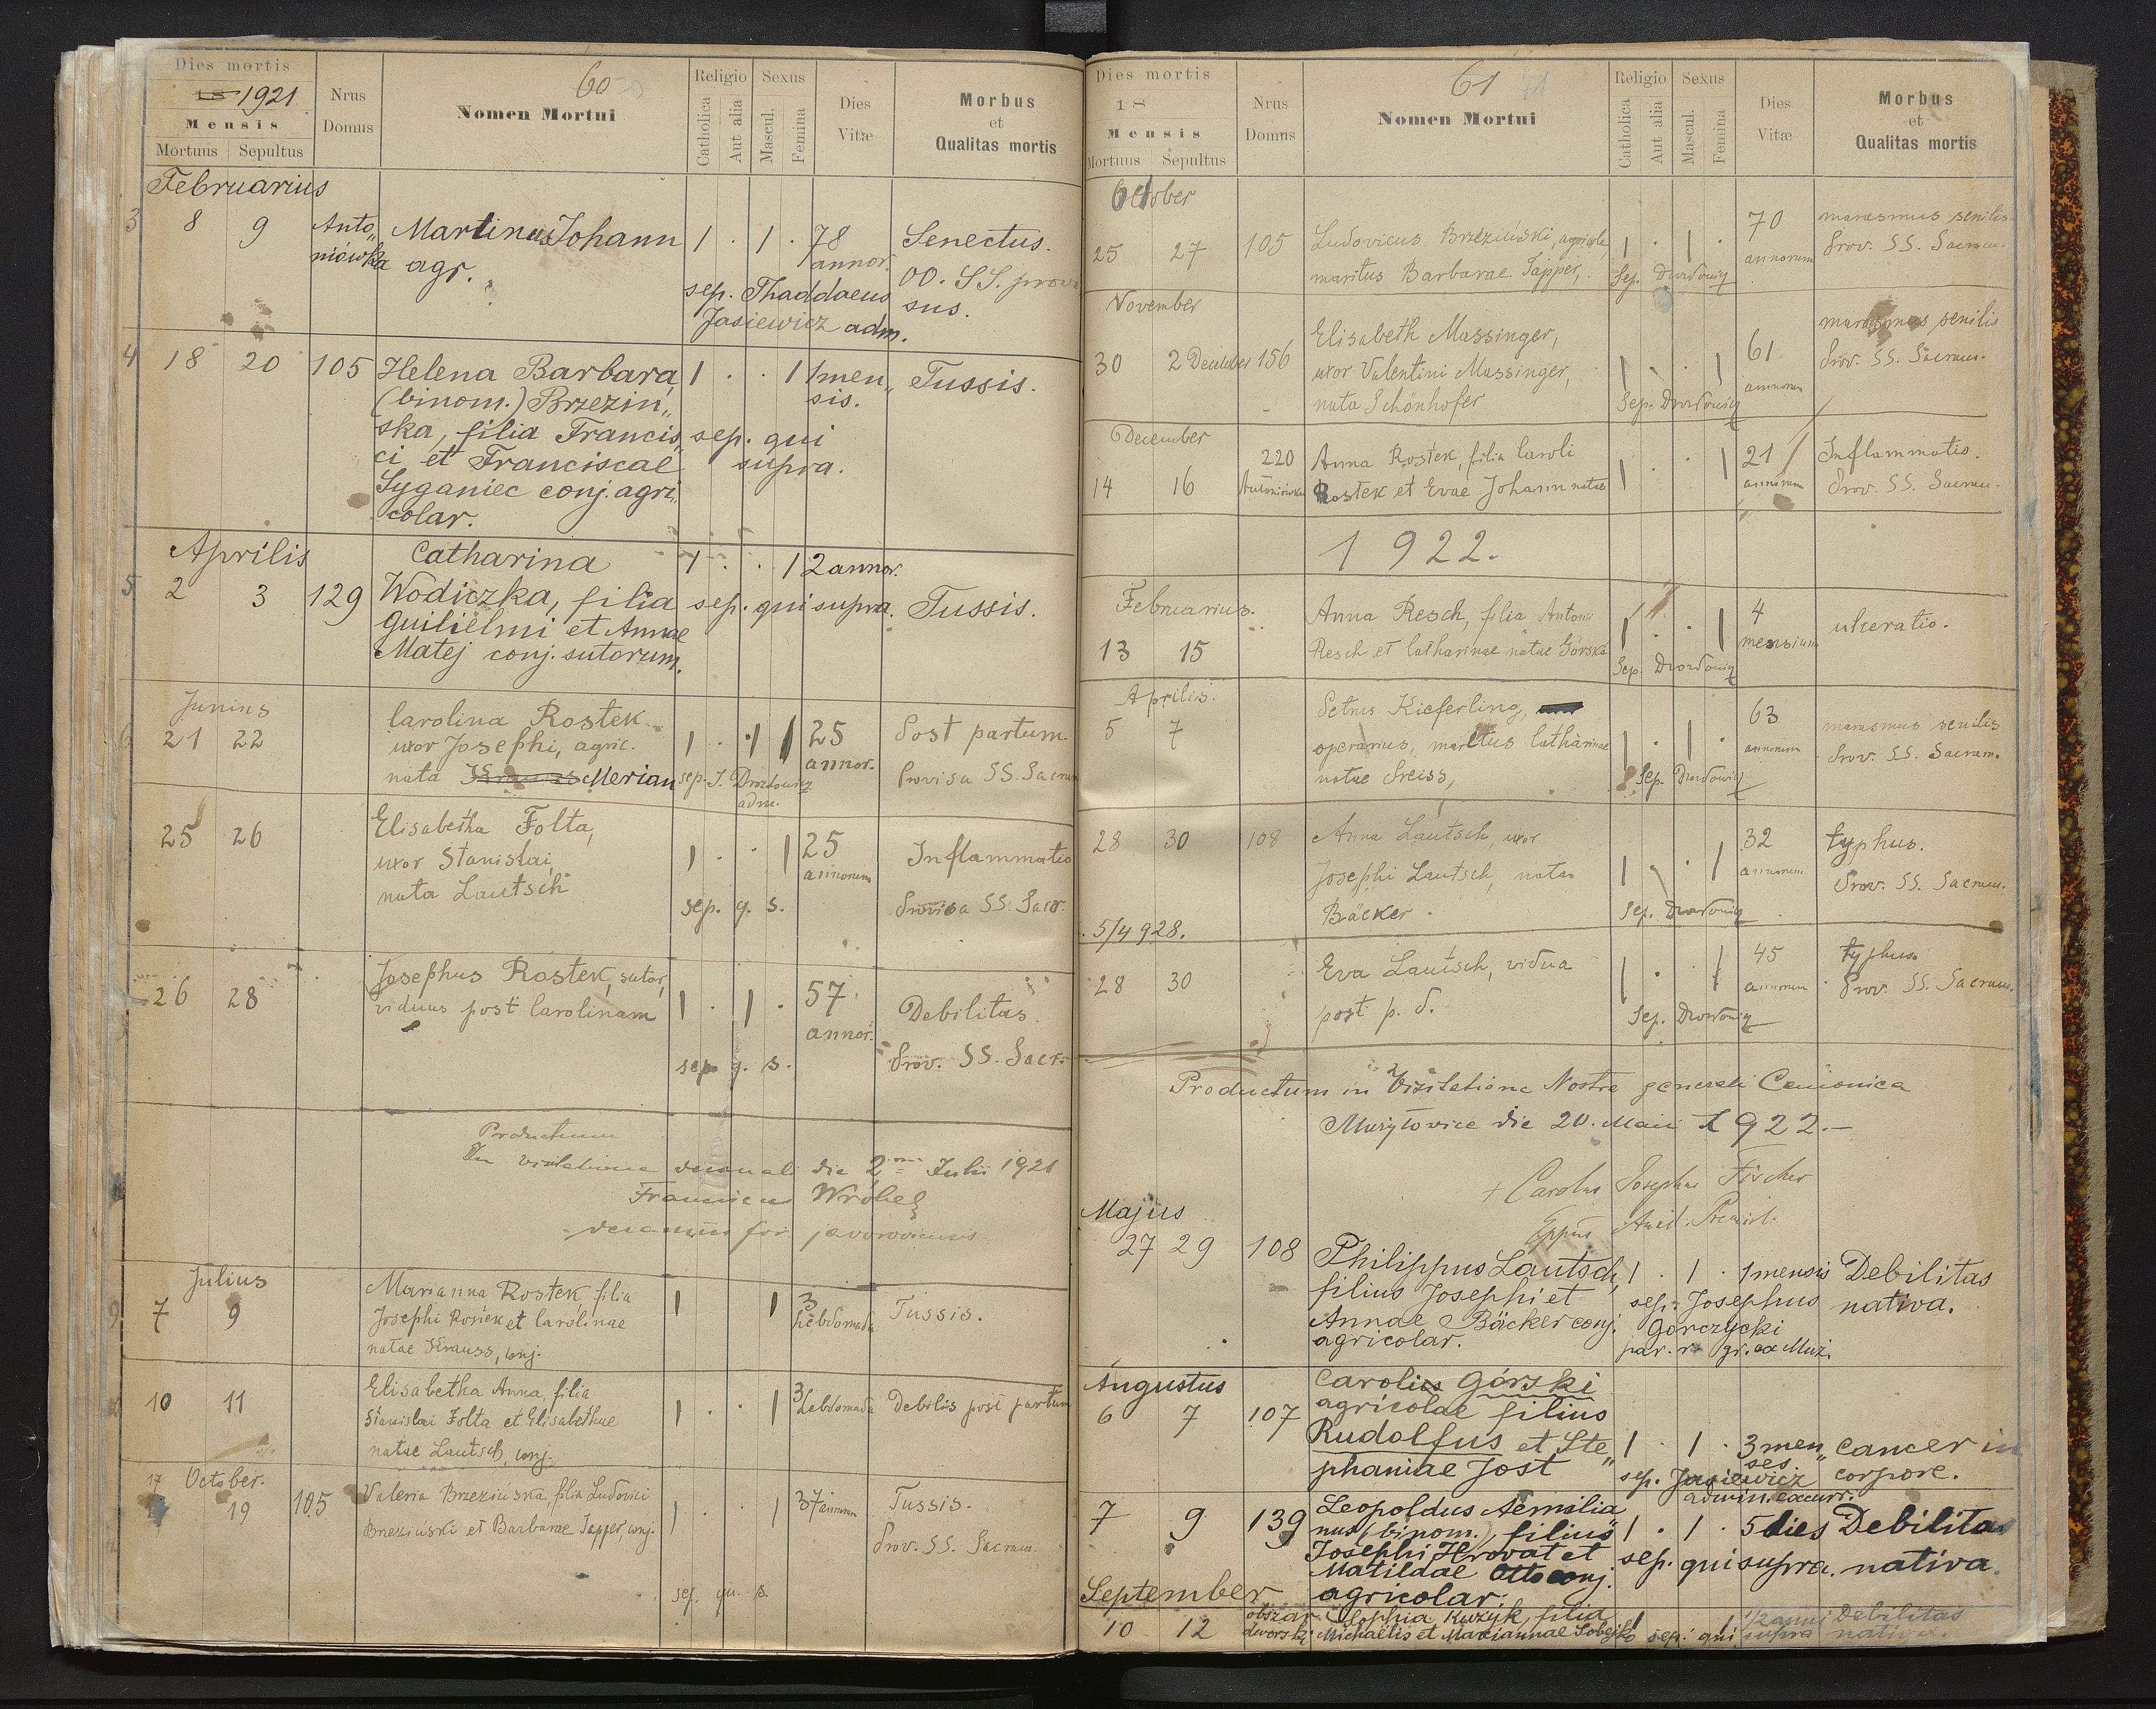 Dies mortis
18 1921
Mensis
Mortuus Sepultus
Nrus Domus
60
Nomen Mortui
Religio
Catholica
Aut alia
Sexus
Mascul.
Femina
Dies Vitæ
Morbus
et
Qualitas mortis
Februarius
3 8 9 Anto„ Martinus Johann 1 . 1 . 78 Senectus.
niówka agr. annor. OO. SS. provi
sep. Thaddaeus sus.
Jasiewicz adm.
4 18 20 105 Helena Barbara 1 . . 1 1 men„ Tussis.
(binom.) Brzezin„ sis.
ska, filia Francis„ sep. qui
ci et Franciscae supra.
Syganiec conj. agri„
colar.
Aprilis Catharina 1 . . 1 2 annor.
5 2 3 129 Wodiczka, filia sep. qui supra. Tussis.
Guilielmi et Annae
Matej conj. sutorum.
Junius Carolina Rostek
6 21 22 uxor Josephi, agric. 1 . 1 25 Post partum.
nata Krauss Merian sep. J. Drozdowicz annor. Provisa SS. Sacram
adm.
25 26 Elisabetha Folta,
uxor Stanislai, 1 . . 1 25 Inflammatio
nata Lautsch annorum
sep. q. s. Provisa SS. Sacr.
26 28 Josephus Rostek, sutor,
viduus post Carolinam 1 . 1 . 57 Debilitas.
annor.
sep. q. s. Prov. SS. Sacr.
Productum
In visitatione decanali die 2 Julii 1921
Franciscus Wróbel
decanus for. javoroviensis
Julius
9 7 9 Marianna Rostek, filia 1 1 3 Tussis.
Josephi Rostek et Carolinae hebdomada
natae Krauss, conj.
10 11 Elisabetha Anna, filia
Stanislai Folta et Elisabethae 1 . . 1 3 hebdomada Debilis post partum
natae Lautsch, conj.
17 October.
19 105 Valeria Brzezińska, filia Ludovici 1 . 1 37 annorum Tussis.
Brzeziński et Barbarae Tapper, conj. Prov. SS. Sacram.
sep. qu. s.
Dies mortis
18
Mensis
Mortuus Sepultus
Nrus Domus
61
Nomen Mortui
Religio
Catholica
Aut alia
Sexus
Mascul.
Femina
Dies Vitæ
Morbus
et
Qualitas mortis
October
25 27 105 Ludovicus Brzeziński, agricola, 1 . 1 . 70 marasmus senilis.
maritus Barbarae Tapper, annorum Prov. SS. Sacram.
Sep. Drozdowicz
November
30 2 December 156 Elisabeth Massinger, 61 marasmus senilis
uxor Valentini Massinger, 1 . . 1 annorum Prov. SS. Sacram.
nata Schönhofer Sep. Drozdowicz
December
14 16 220 Anna Rostek, filia Caroli 1 . . 1 21 Inflammatio.
Antoniówka Rostek et Evae Johann natae annorum Prov. SS. Sacram.
1922.
Februarius.
13 15 Anna Resch, filia Antonii 1 . . 1 4 ulceratio.
Resch et Catharinae natae Górska mensium
Sep. Drozdowicz
Aprilis.
5 7 Petrus Kieferling, 63 marasmus senilis
operarius, maritus Catharinae 1 . 1 . annorum Prov. SS. Sacram.
natae Preiss, Sep. Drozdowicz
28 30 108 Anna Lautsch, uxor 32 typhus.
Josephi Lautsch, nata 1 . . 1 annorum Prov. SS. Sacram.
Bäcker. Sep. Drozdowicz
5/4 928.
28 30 Eva Lautsch, vidua 1 . . 1 45 typhus.
post p. d. annorum Prov. SS. Sacram.
Sep. Drozdowicz
Productum in Visitatione Nostra generali Canonica
Mużyłowice die 20. Maii 1922.—
+ Carolus Josephus Fischer
Eppus Auxil. Premisl.
Majus
27 29 108 Philippus Lautsch, 1 . 1 . 1 mensis Debilitas
filius Josephi et sep. Josephus nativa.
Annae Bäcker conj. Gorczycki
agricolar. par. r. gr. ex Muż.
Augustus Carolus Górski
6 7 107 agricolae filius
Rudolfus et Ste„ 1 . 1 . 3 men„ cancer in
phaniae Jost sep. Jasiewicz ses corpore.
admin. excurr.
7 9 139 Leopoldus Aemilia„
nus (binom.), filius 1 . 1 . 5 dies Debilitas
Josephi Hrovat et sep. qui supra. nativa.
Matildae Otto conj.
September agricolar.
10 12 obszar Sophia Kuzyk, filia 1 1 1/2 anni Debilitas
dworski Michaëlis et Mariannae Sobejko sep. qui supra nativa.